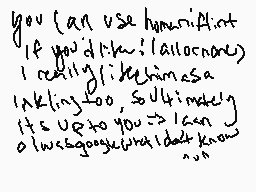 you can use homaniflint
if you'd like! (allocnone)
I really like him as a
inkling too, so ultimately
it's up to you => I can
also google what I don't know
^u^